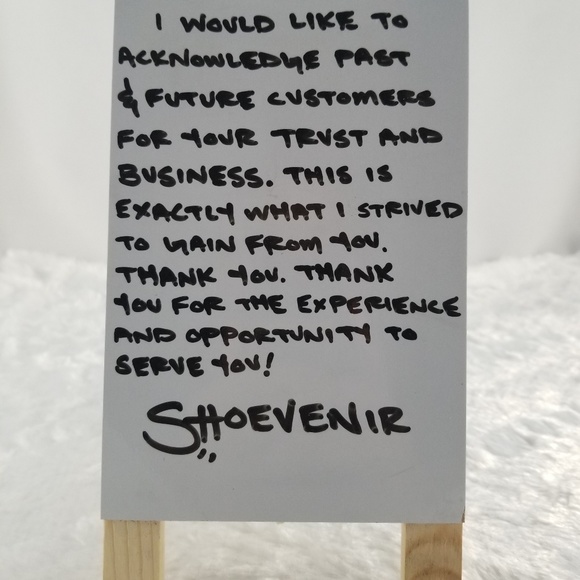 I WOULD LIKE TO
ACKNOWLEDGE PAST
& FUTURE CUSTOMERS
FOR YOUR TRUST AND
BUSINESS. THIS IS
EXACTLY WHAT I STRIVED
TO GAIN FROM YOU.
THANK YOU. THANK
YOU FOR THE EXPERIENCE
AND OPPORTUNITY TO
SERVE YOU!
SHOEVENIR